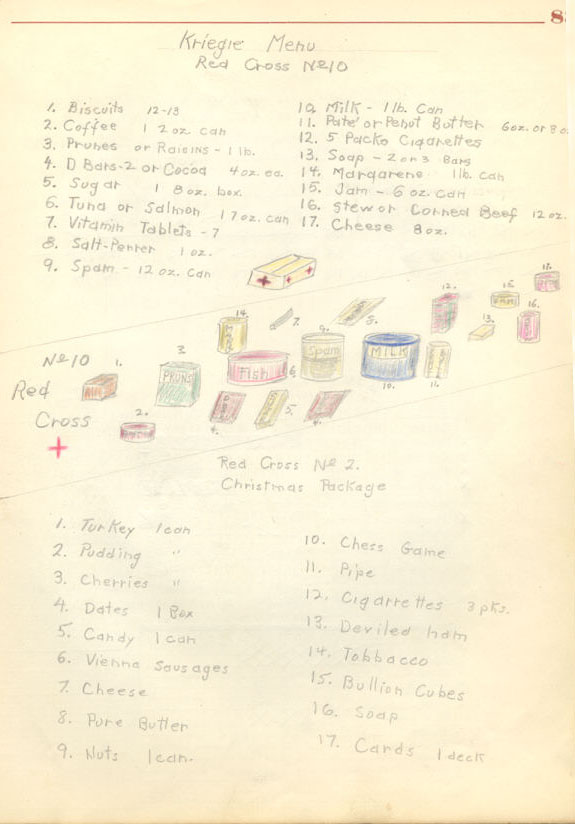 8
Kriegie Menu
Red Cross № 10
1. Biscuits 12-13
2. Coffee 1 2 oz. can
3. Prunes or Raisins - 1 lb.
4. D Bars-2 or Cocoa 4 oz. ea.
5. Sugar 1 8 oz. box
6. Tuna or Salmon 1 7 oz. can
7. Vitamin Tablets - 7
8. Salt-Pepper 1 oz.
9. Spam - 12 oz. can
10. Milk - 1 lb. can
11. Pate' or Penut Butter 6 oz. or 8 o
12. 5 Packs Cigarettes
13. Soap - 2 or 3 Bars
14. Margarene 1 lb. can
15. Jam - 6 oz. can
16. Stew or Corned Beef 12 oz.
17. Cheese 8 oz.
№ 10
Red
Cross
1.
2.
3.
PRUNS
4.
5.
4.
Fish
6.
7.
8.
9.
Spam
MILK
10.
11.
12.
13.
14.
15.
16.
Red Cross № 2.
Christmas Package
1. Turkey 1 can
2. Pudding "
3. Cherries "
4. Dates 1 Box
5. Candy 1 can
6. Vienna Sausages
7. Cheese
8. Pure Butter
9. Nuts 1 can.
10. Chess Game
11. Pipe
12. Cigarrettes 3 pks.
13. Deviled ham
14. Tobbacco
15. Bullion Cubes
16. Soap
17. Cards 1 deck